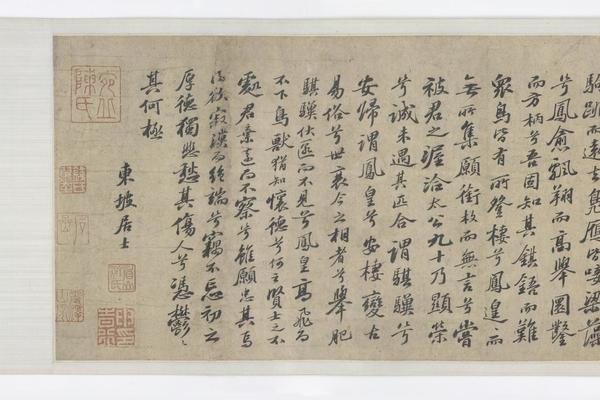 駒跳而遠去鳧鴈皆唼粱藻
兮鳳愈飄翔而高舉圜鑿
而方枘兮吾固知其鉏鋙而難
眾鳥皆有所登棲兮鳳皇而
無所集願銜枚而無言兮嘗
被君之渥洽太公九十乃顯榮
兮誠未遇其匹合謂騏驥兮
安歸謂鳳皇兮安棲變古
易俗兮世衰今之相者兮舉肥
騏驥伏匿而不見兮鳳皇高飛而
不下鳥獸猶知懷德兮何云賢士之不
處君棄遠而不察兮雖願忠其焉
得欲寂漠而絕端兮竊不忘初之
厚德獨悲愁其傷人兮馮鬱〻
其何極
東坡居士
陳氏